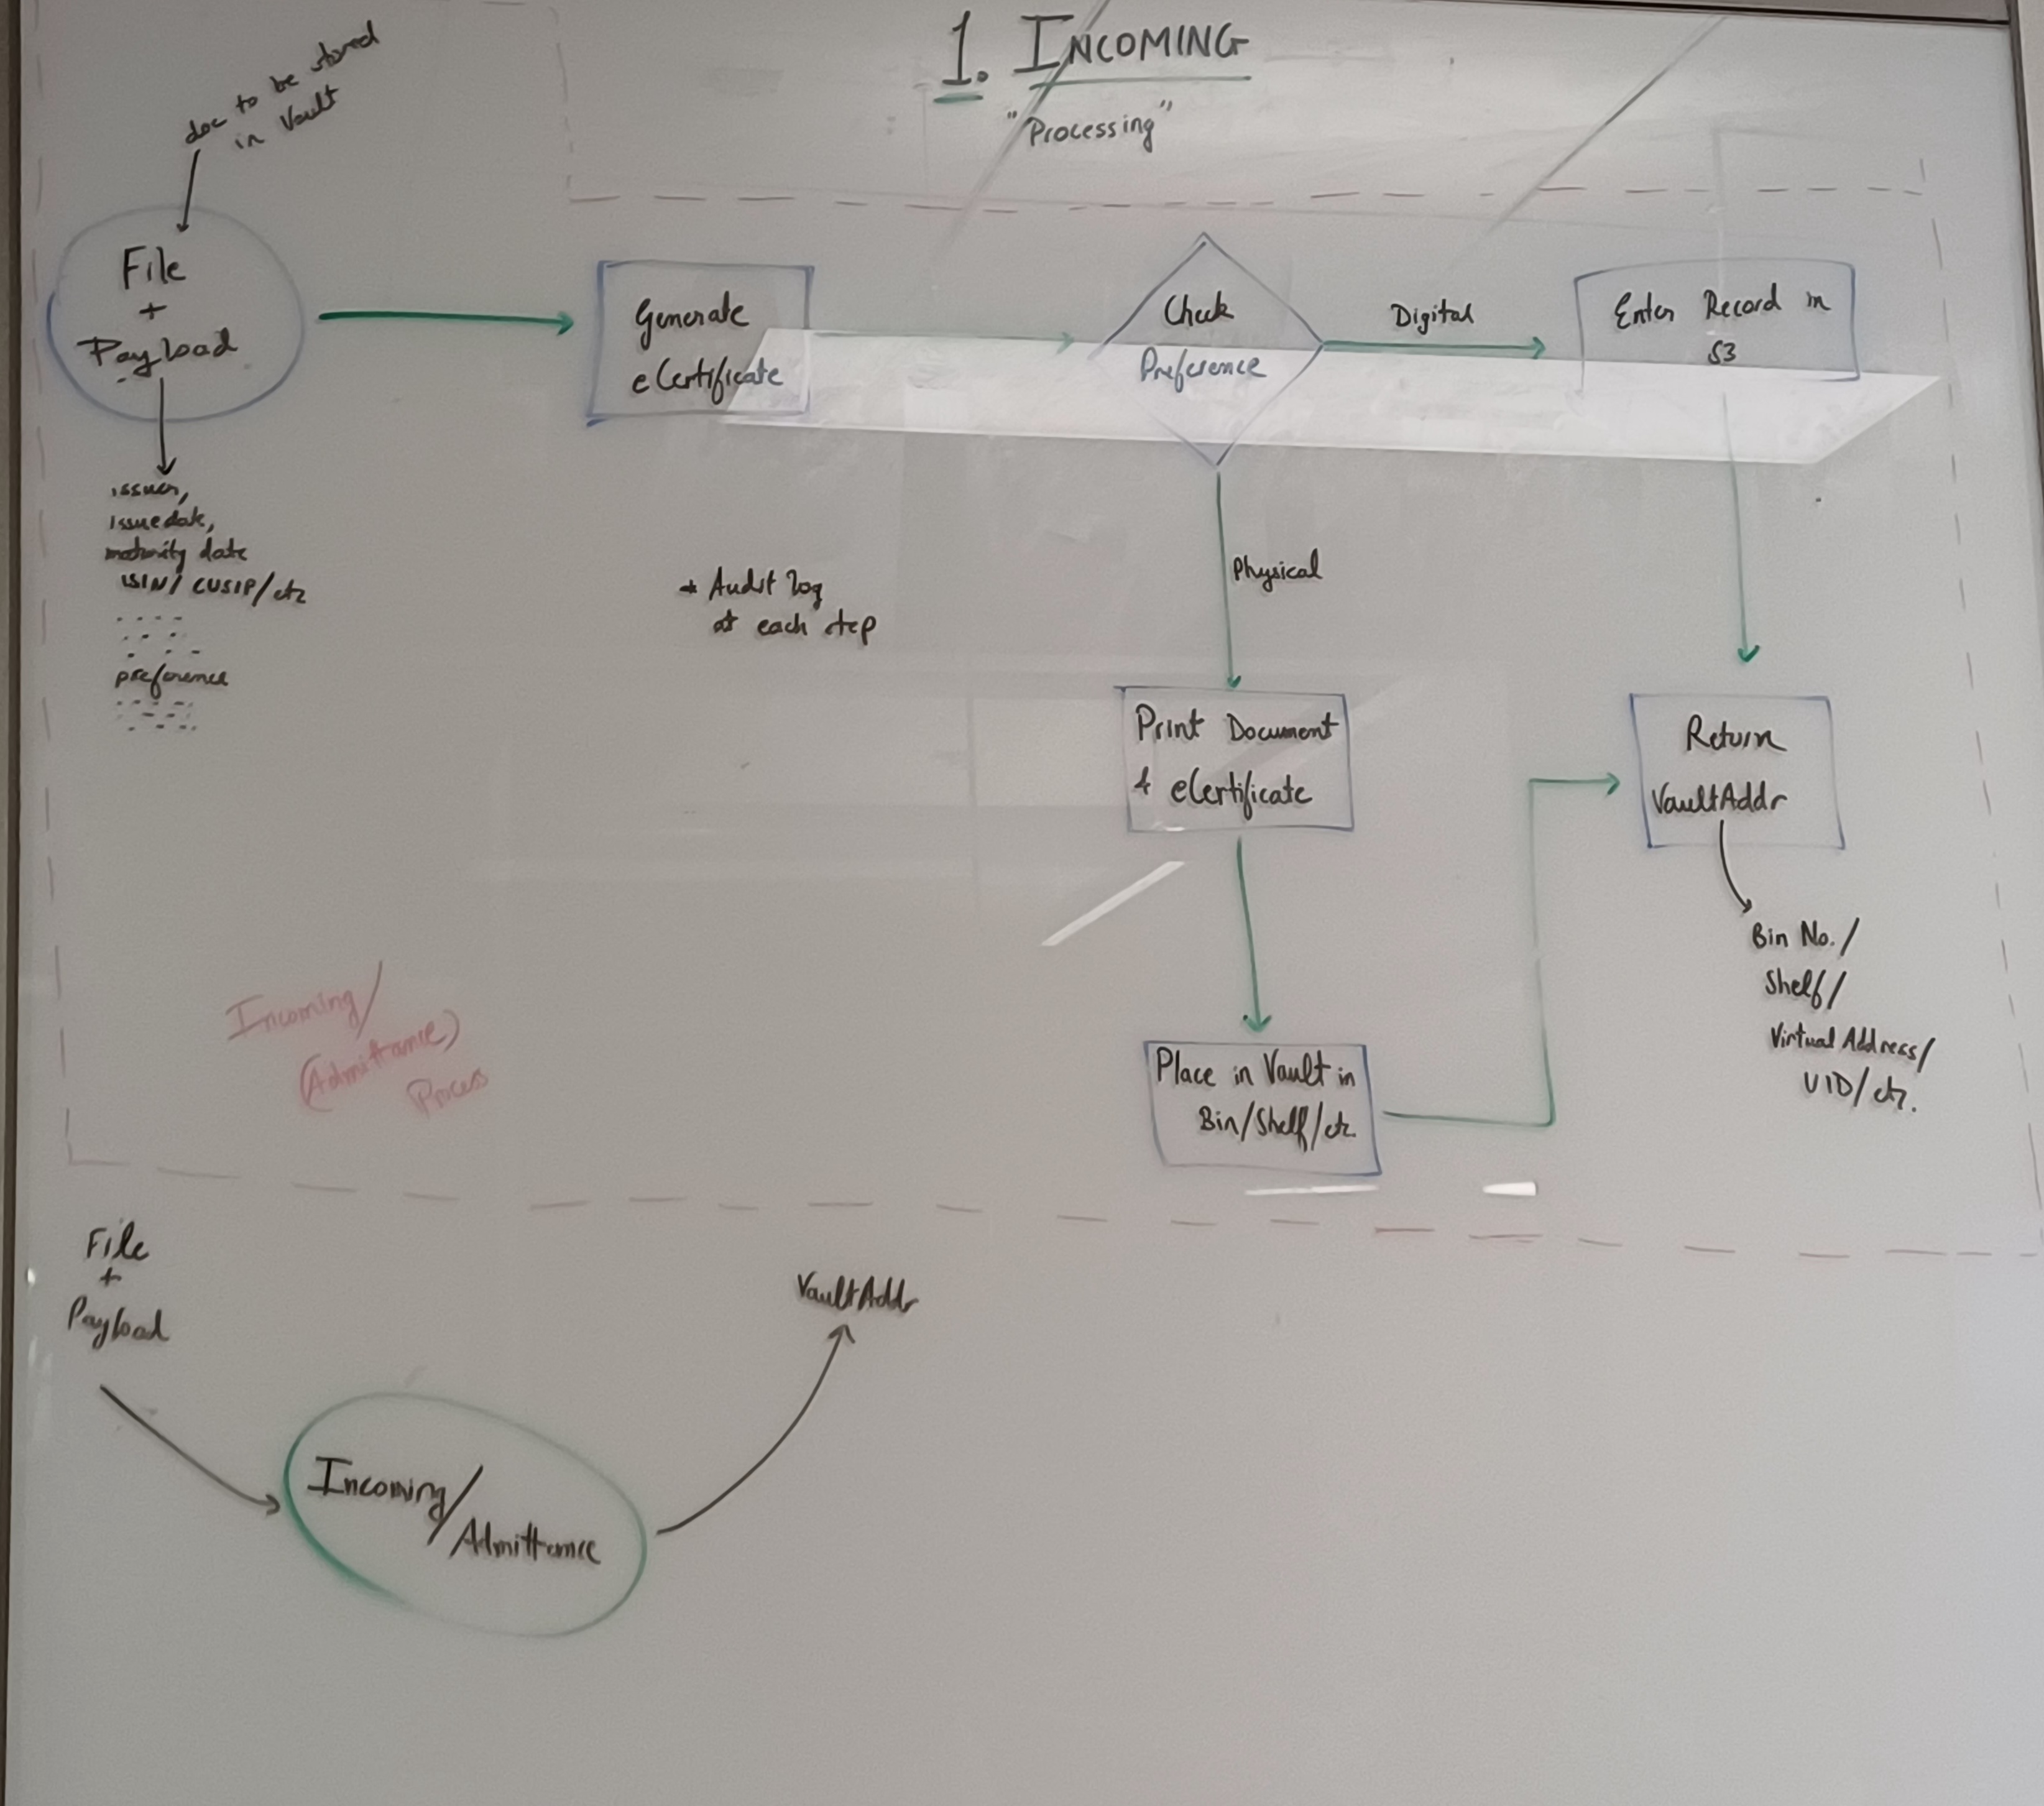 1. INCOMING
"Processing"
doc to be stored
in Vault
File
+
Payload
issuer,
issuedate,
maturity date
ISIN/ CUSIP/etc
preference
Generate
eCertificate
Check
Preference
Digital
Enter Record in
S3
Physical
* Audit log
at each step
Print Document
+ eCertificate
Return
VaultAddr
Bin No./
Shelf/
Virtual Address/
UID/etc.
Place in Vault in
Bin/Shelf/etc.
Incoming/
(Admittance)
Process
File
+
Payload
VaultAddr
Incoming/
Admittance